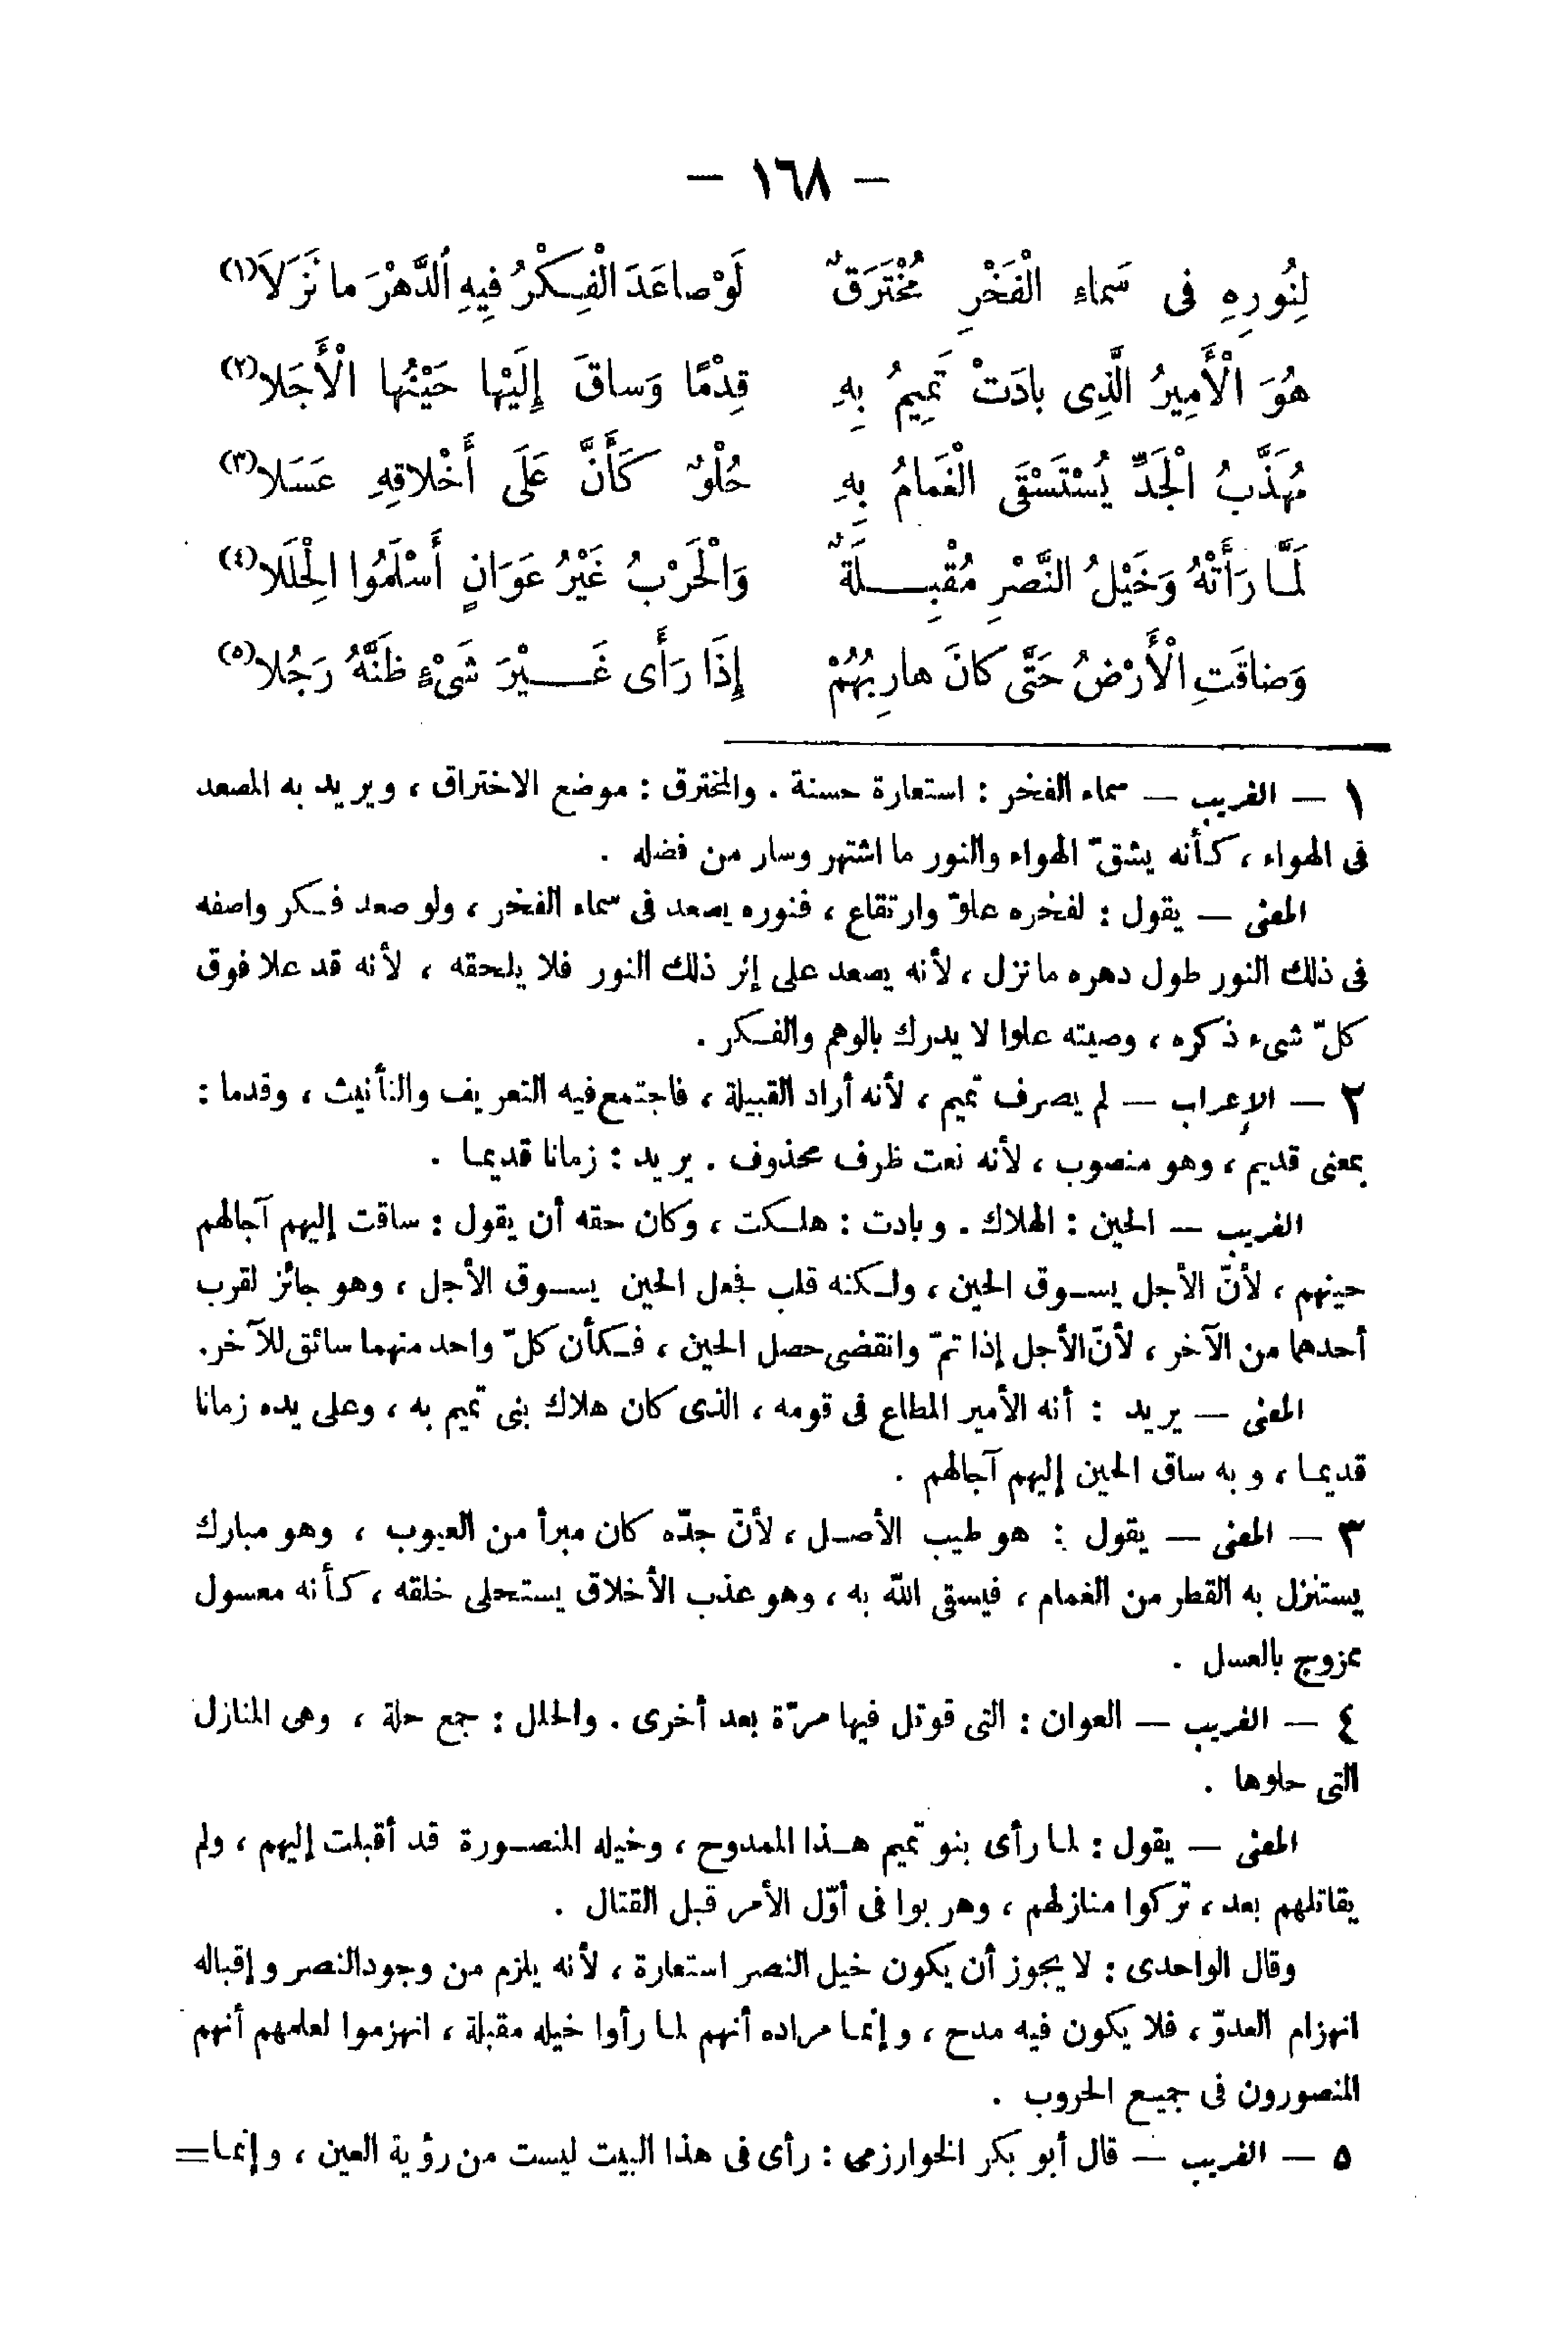 — ١٦٨ —
لِنُورِهِ فى سَماءِ الْفَخْرِ مُخْتَرَقٌ لَوْ صاعَدَ الْفِكْرُ فِيهِ الدَّهْرَ ما نَزَلَا (١)
هُوَ الْأَمِيرُ الَّذِى بادَتْ تَمِيمُ بِهِ قِدْمًا وَساقَ إِلَيْها حَيْنُها الْأَجَلا (٢)
مُهَذَّبُ الْجَدِّ يُسْتَسْقَى الْغَمامُ بِهِ حُلْوٌ كَأَنَّ عَلَى أَخْلاقِهِ عَسَلا (٣)
لَمَّا رَأَتْهُ وَخَيْلُ النَّصْرِ مُقْبِلَةٌ وَالْحَرْبُ غَيْرُ عَوَانٍ أَسْلَمُوا الْحِلَلا (٤)
وَضاقَتِ الْأَرْضُ حَتَّى كانَ هارِبُهُمْ إِذَا رَأَى غَيْرَ شَىْءٍ ظَنَّهُ رَجُلا (٥)
١ — الغريب — سماء الفخر : استعارة حسنة . والمخترق : موضع الاختراق ، ويريد به المصعد
فى الهواء ، كأنه يشقّ الهواء والنور ما اشتهر وسار من فضله .
المعنى — يقول : لفخره علوّ وارتقاع ، فنوره يصعد فى سماء الفخر ، ولو صعد فكر واصفه
فى ذلك النور طول دهره ما نزل ، لأنه يصعد على إثر ذلك النور فلا يلحقه ، لأنه قد علا فوق
كلّ شىء ذكره ، وصيته علوا لا يدرك بالوهم والفكر .
٢ — الإعراب — لم يصرف تميم ، لأنه أراد القبيلة ، فاجتمع فيه التعريف والتأنيث ، وقدما :
بمعنى قديم ، وهو منصوب ، لأنه نعت ظرف محذوف . يريد : زمانا قديما .
الغريب — الحين : الهلاك . وبادت : هلكت ، وكان حقه أن يقول : ساقت إليهم آجالهم
حينهم ، لأنّ الأجل يسوق الحين ، ولكنه قلب فجعل الحين يسوق الأجل ، وهو جائز لقرب
أحدهما من الآخر ، لأنّ الأجل إذا تمّ وانقضى حصل الحين ، فكأن كلّ واحد منهما سائق للآخر.
المعنى — يريد : أنه الأمير المطاع فى قومه ، الذى كان هلاك بنى تميم به ، وعلى يده زمانا
قديما ، وبه ساق الحين إليهم آجالهم .
٣ — المعنى — يقول : هو طيب الأصل ، لأنّ جدّه كان مبرأ من العيوب ، وهو مبارك
يستنزل به القطر من الغمام ، فيسقى الله به ، وهو عذب الأخلاق يستحلى خلقه ، كأنه معسول
ممزوج بالعسل .
٤ — الغريب — العوان : التى قوتل فيها مرّة بعد أخرى . والحلل : جمع حلة ، وهى المنازل
التى حلوها .
المعنى — يقول : لما رأى بنو تميم هذا الممدوح ، وخيله المنصورة قد أقبلت إليهم ، ولم
يقاتلهم بعد ، تركوا منازلهم ، وهربوا فى أوّل الأمر قبل القتال .
وقال الواحدى : لا يجوز أن يكون خيل النصر استعارة ، لأنه يلزم من وجود النصر وإقباله
انهزام العدوّ ، فلا يكون فيه مدح ، وإنما مراده أنهم لما رأوا خيله مقبلة ، انهزموا لعلمهم أنهم
المنصورون فى جميع الحروب .
٥ — الغريب — قال أبو بكر الخوارزمى : رأى فى هذا البيت ليست من رؤية العين ، وإنما=